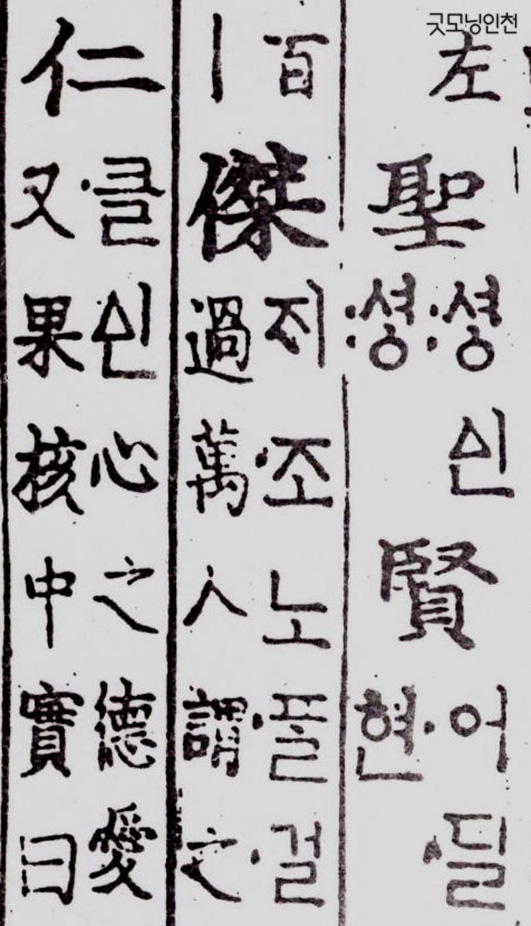 굿모닝인천
左
聖
:셩ᅀᅵᆫ
:셩
賢
어·딜
현
百
丨
傑
지·조노·플·걸
過萬人謂之
仁
·클ᅀᅵᆫ心之德愛
又果核中實曰